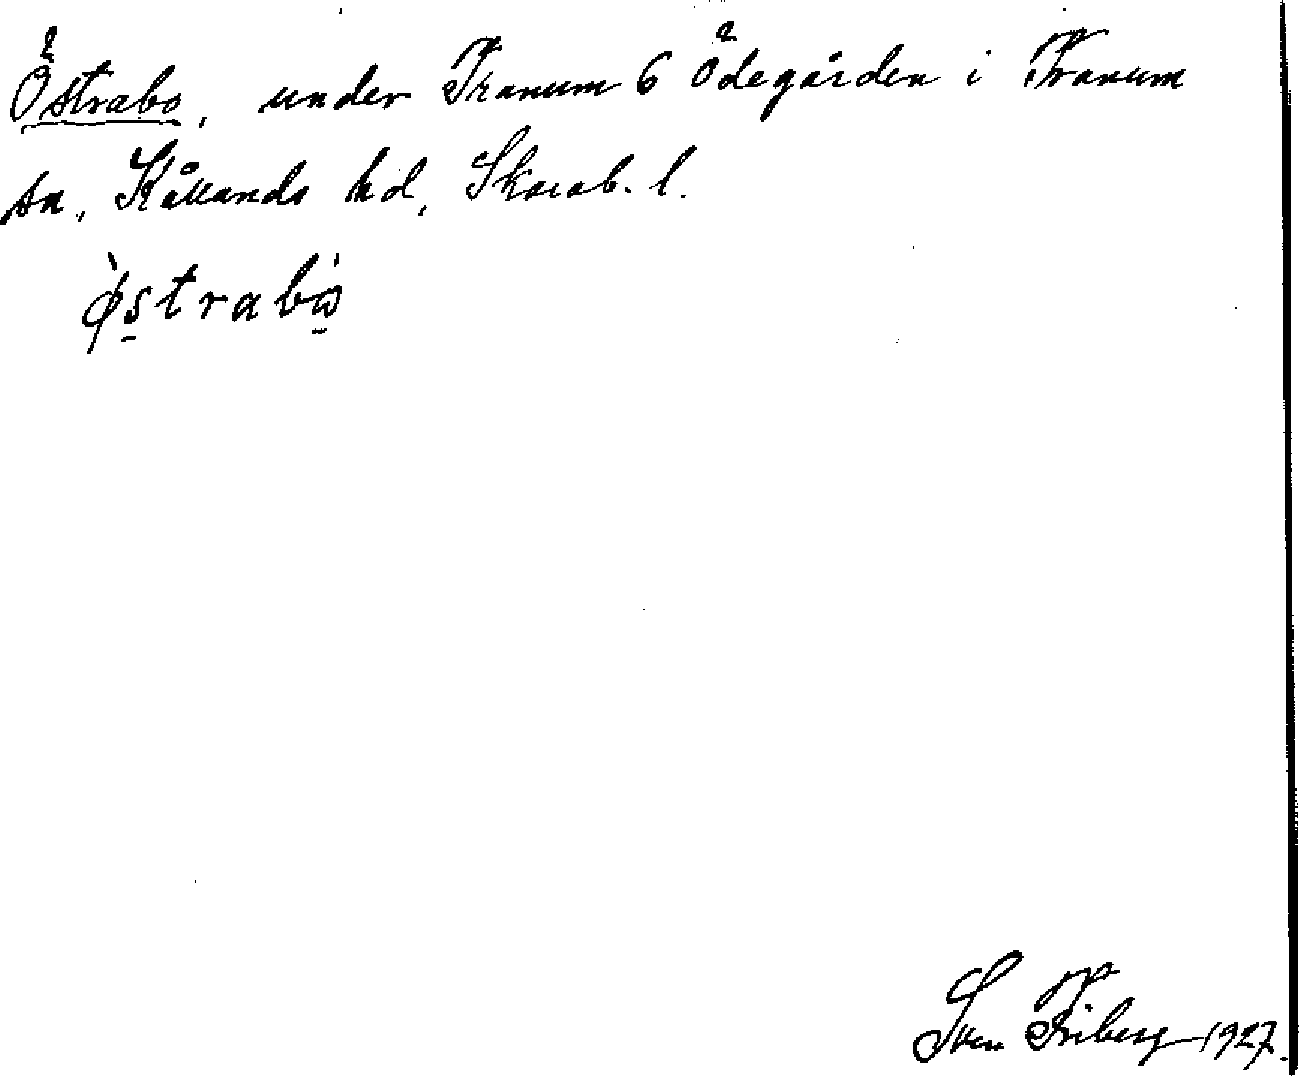 Östrabo, under Tranum 6 Ödegården i Tranum
sn, Kållands hd, Skarab. l.
ø̀strabò
Sven Friberg 1927.